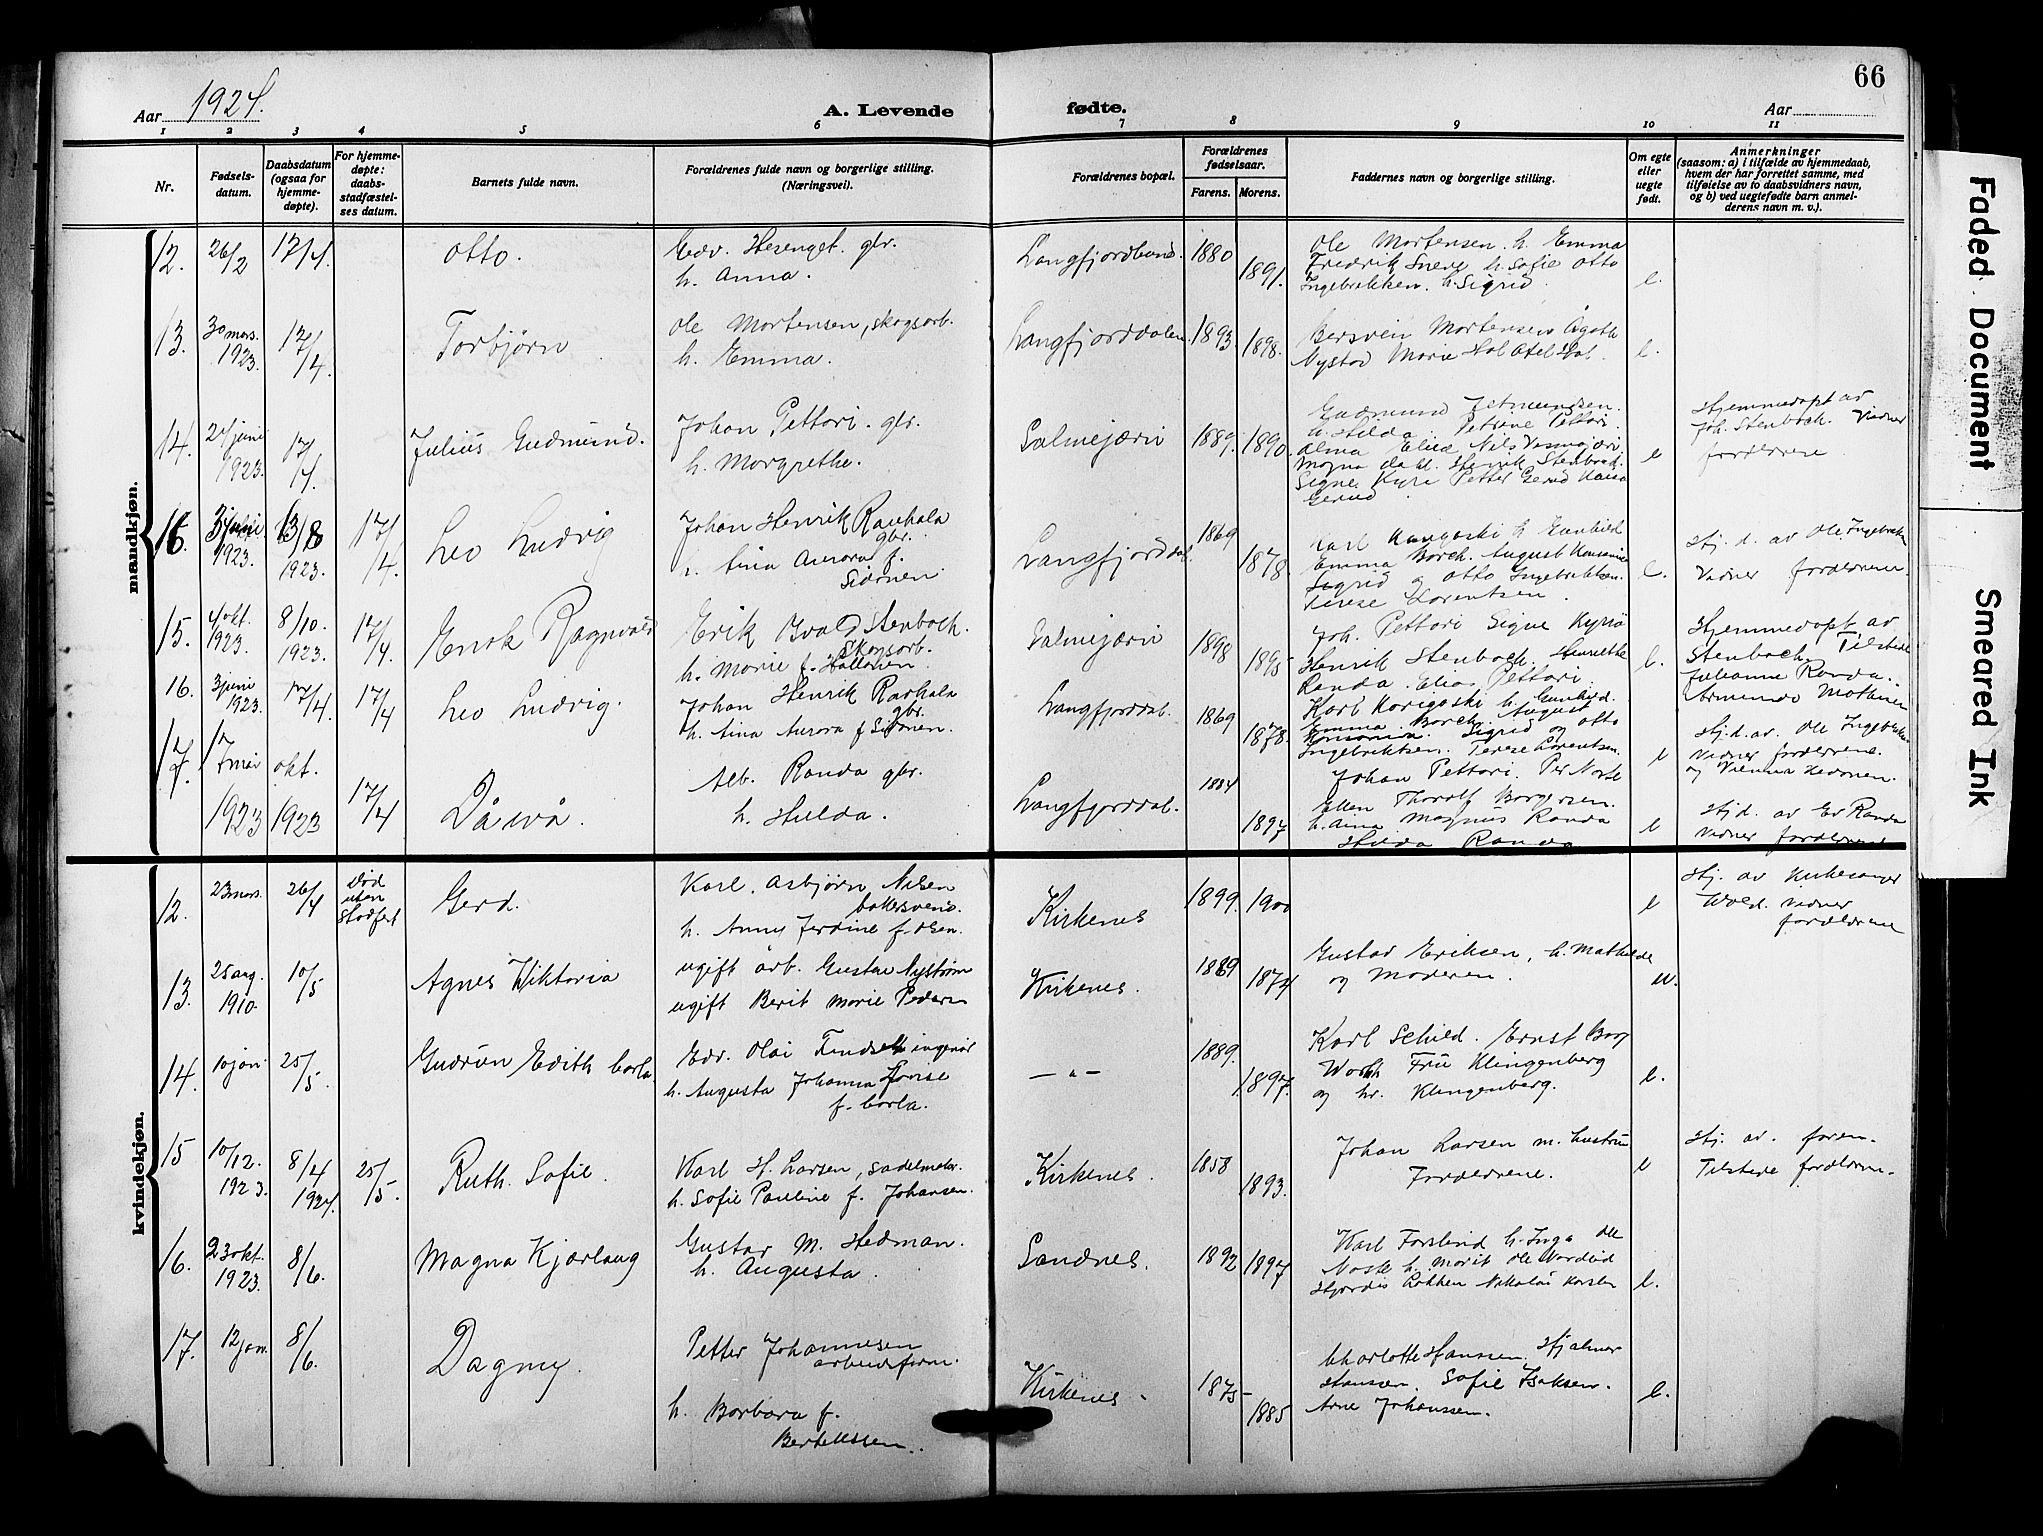 66
Aar 1924.
A. Levende fødte.
Aar
1 2 3 4 5 6 7 8 9 10 11
Nr.
Fødsels-
datum.
Daabsdatum
(ogsaa for
hjemme-
døpte).
For hjemme-
døpte:
daabs-
stadfæstel-
ses datum.
Barnets fulde navn.
Forældrenes fulde navn og borgerlige stilling.
(Næringsvei).
Forældrenes bopæl.
Forældrenes
fødselsaar.
Farens. Morens.
Faddernes navn og borgerlige stilling.
Om egte
eller
uegte
født.
Anmerkninger
(saasom: a) i tilfælde av hjemmedaab,
hvem der har forrettet samme, med
tilføielse av to daabsvidners navn,
og b) ved uegtefødte barn anmel-
derens navn m. v.).
mandkjøn.
12. 26/2 17/4. Otto.
Edv. Hesenget. gbr.
h. Anna.
Langfjordbund. 1880 1891.
Ole Mortensen. h. Emma
Fredrik Snere h. Sofie Otto
Ingebrikken. h. Sigrid.
e.
13. 30 mars. 1923. 17/4. Torbjørn
Ole Mortensen, skogsarb.
h. Emma.
Langfjorddalen 1893 1898.
Mortensen Ågoth
Nystad Marie
e.
14. 24 juni 1923. 17/4. Julius Gudmund.
Johan Pettari. gbr.
h. Margrethe.
Salmijærvi 1889. 1890.
h. Hilda. Petrine Pettari.
Magna Dahl. Henrik Stenbock.
Signe Kyrö Petter
e
Hjemmedøpt av
Joh. Stenbock. Vidner
forældrene
16. 3 juni 1923. 13/8 1923. 17/4. Leo Ludvig
Johan Henrik Rauhala
gbr.
h. Aina Aurora f.
Sidonen.
Langfjorddal. 1869 1878.
Karl h. Gunhild
Emma Borch. August
Sigrid og Otto Ingebrikken.
Terese Lorentsen.
e.
Hj. d. av Ole Ingebrikken
Vidner forældrene.
15. 4 okt. 1923. 8/10. 1923. 17/4. Enok Ragnvald
Erik Hvald Stenbock.
skogsarb.
h. Marie f.
Salmijærvi 1898 1895
Joh. Pettari Signe Kyrö
Henrik Stenbock. Henriette
Randa. Elias Pettari.
e.
Hjemmedøpt av
Stenbock. Tilstede
Julianne Randa.
16. 3 juni 1923. 17/4. 17/4 Leo Ludvig.
Johan Henrik Rauhala
gbr.
h. Aina Aurora f Sidonen.
Langfjorddal. 1869 1878.
Karl h. Gunhild.
Emma Borch. August
Sigrid og Otto
Ingebrikksen. Terese Lorentsen.
e
Hj. d. av. Ole Ingebrikken
Vidner forældrene.
og
17. 17 mai 1923 okt. 1923 17/4
Alb. Randa gbr.
h. Hilda.
Langfjorddal. 1884 1897
Johan Pettari. Per Noste
Ellen Thoralf Borgersen.
h. Aina Magnus Randa
Hilda Randa
e
Hj d. av Randa
Vidner forældrene
kvindekjøn.
12. 23 mars. 26/4 Død
uten
stadfest
Gerd.
Karl. Asbjørn Nilsen
bakersvend.
h. Anny Jerdine f. Olsen.
Kirkenes 1899. 1900
e
Hj. av kirkesanger
Wold. Vidner
forældrene
13. 25 aug. 1910. 10/5 Agnes Viktoria
ugift arb. Gustav Nystrøm
ugift Berit Marie Pedersen
Kirkenes. 1889 1874
Gustav Eriksen, h. Mathilde
og Moderen.
u.
14. 10 jan 25/5. Gudrun Edith Carla.
Edv. Olai Findseth ingeniør
h. Augusta Johanna Lovise
f. Carla.
— " — 1889. 1897.
Karl Schild. Ernst Borg
Fru Klingenberg
og hr. Klingenberg.
e.
15 10/12. 1923. 8/4 1924. 25/5. Ruth Sofie.
Karl H. Larsen, sadelmaker.
h. Sofie Pauline f. Johansen.
Kirkenes. 1858 1893.
Johan Larsen m. hustru
Forældrene.
e
Hj. av. faren.
Tilstede forældrene.
16. 23 okt. 1923. 8/6. Magna Kjærlaug
Gustav M. Hedman.
h. Augusta.
Sandnes. 1892 1897
Karl Forslund h. Inga Ole
Noste h. Marit Ole Nordlid
Hjørdis Løkken Nikolai Karslen
e.
17. 12 jan. 8/6. Dagny.
Petter Johannesen
arbeidsform.
h. Barbara f.
Bertelssen.
Kirkenes. 1875 1885
Charlotte Hanssen. Hjalmar
Hanssen. Sofie Isaksen.
Arne Johanssen.
e.
Faded Document
Smeared Ink